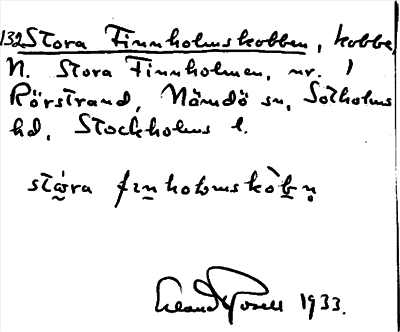 132 Stora Finnholmskobben, kobbe,
N. Stora Finnholmen, nr. 1
Rörstrand, Nämdö sn, Sotholms
hd, Stockholms l.
Erland Rosell 1933.